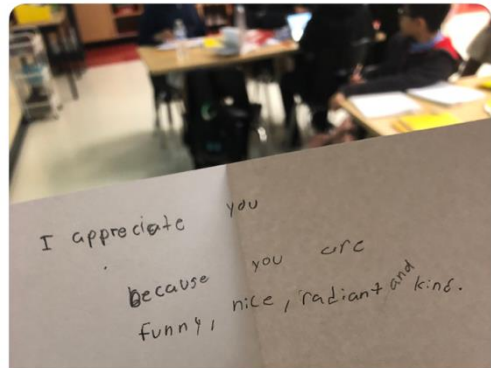 I appreciate you
because you are
funny, nice, radiant and kind.